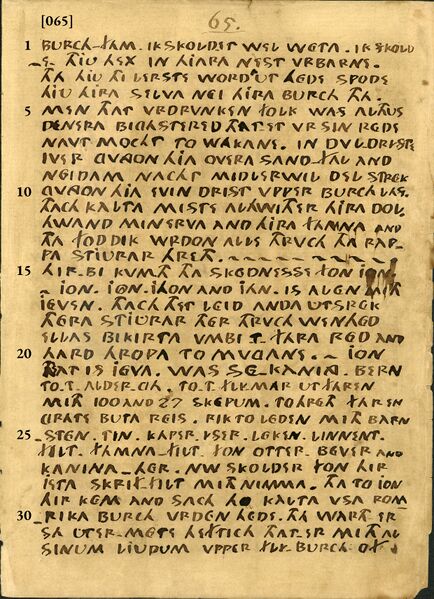 [065]
65.
1 BURCH-FAM. IK SKOLDET WEL WETA. IK SKOLD
-E. THIU HEX IN HIARA NEST VRBARNE.
THA HIU THI LERSTE WORD UT HEDE SPODE
HIU HIRA SELVA NEI HIRA BURCH THA.
5 MEN THAT VRDRVNKEN FOLK WAS ALTHUS
DENERA BICHSTERED THAT ET VRSIN REDE
NAVT MOCHT TO WAKANE. IN DVLDRISTE
IVER GVNGON HIA OVERA SAND-FAL AND
NEIDAM NACHT MIDLERWIL DEL STREK
10 GVNGON HIA EVIN DRIST VPPER BURCH LAS.
TACH KALTA MISTE ALHWITHER HIRA DOL,
HWAND MINERVA AND HIRA FAMNA AND
THA FODDIK WRDON ALLE THRVCH THA RAP-
PA STIURAR HRETH.
15 HIR-BI KVMTH THA SKEDNESSE FON ION
- ION. ION. IHON AND IAN. IS AL EN MITH
IEVEN. THACH THET LEID ANDA UTSREK
THERA STIURAR THER THRVCH WENHED
ELLAS BIKIRTA VMBI T. FARA RED AND
20 HARD HROPA TO MVGANE. - ION
THAT IS IEVA. WAS SE-KANING. BERN
TO.T. ALDER-GA. TO.T FLIMAR UT FAREN
MITH 100 AND 27 SKEPUM. TOHRETH FAREN
GRATE BUTA REIS. RIK TO LEDEN MITH BARN
25 -STEN. TIN. KAPER. YSER. LEKEN. LINNENT.
FILT. FAMNA-FILT. FON OTTER. BEVER AND
KANINA-HER. NW SKOLDER FON HIR
ISTA SKRIFFILT MITH NIMMA. THA TO ION
HIR KEM AND SACH HO KALTA VSA ROM
30 -RIKA BURCH VRDEN HEDE. THA WARTH ER
SA UTER-METE HEFTICH THAT.ER MITH AL
SINUM LIUDUM VPPER FLY-BURCH OF